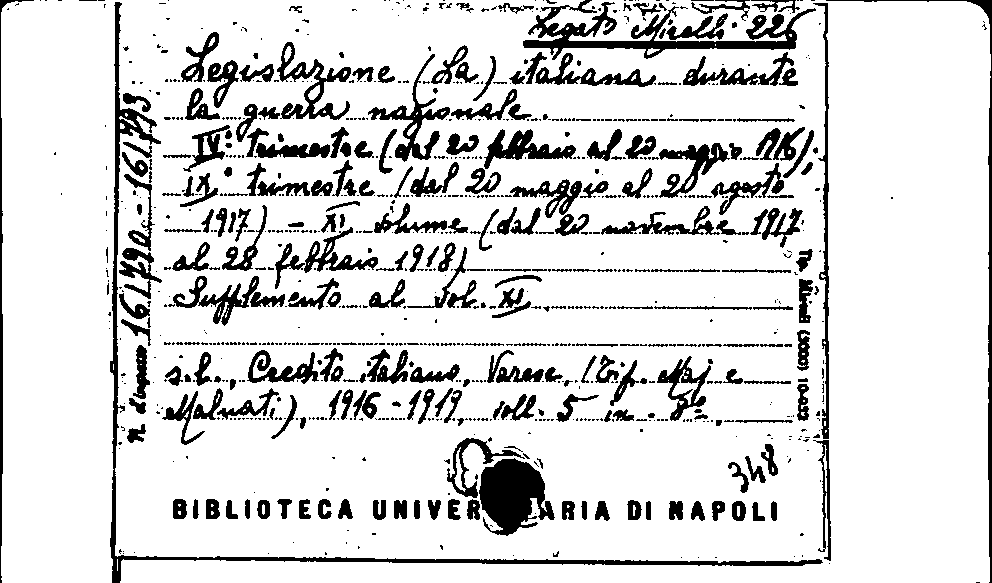 Legato Mirelli 226
Legislazione (La) italiana durante
la guerra nazionale.
IV° trimestre (dal 20 febbraio al 20 maggio 1916);
IX° trimestre (dal 20 maggio al 20 agosto
1917) - XI volume (dal 20 novembre 1917
al 28 febbraio 1918)
Supplemento al vol. XI
s.l., Credito italiano, Varese, (Tip. Maj e
Malnati), 1916-1919, voll. 5 in. 8°.
348
BIBLIOTECA UNIVER ARIA DI NAPOLI
n. d'ingresso 161790-161793
Tip. (3000) 10-933